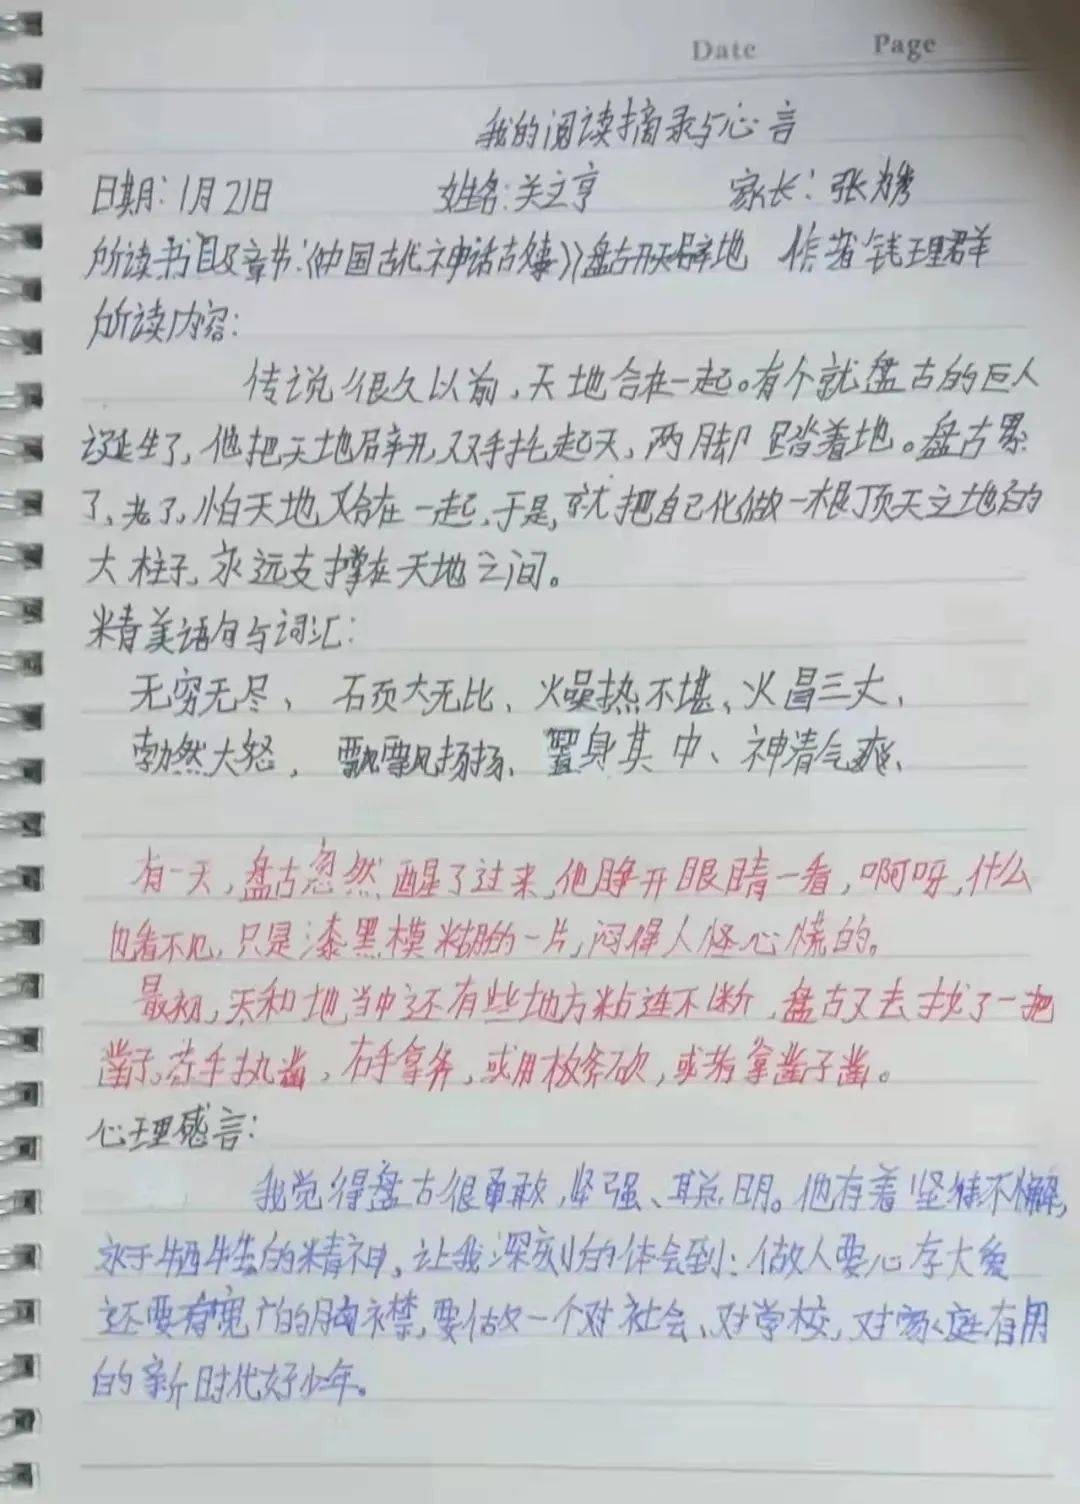 Date Page
我的阅读摘录与心言
日期:1月21日 姓名:关立亨 家长:张为秀
所读书目及章节:《中国古代神话故事》盘古开天辟地 作者钱理群
所读内容:
传说很久以前,天地合在一起。有个就盘古的巨人
诞生了,他把天地辟开,双手托起天,两脚踏着地。盘古累
了,老了,怕天地又合在一起,于是,就把自己化做一根顶天立地的
大柱子,永远支撑在天地之间。
精美语句与词汇:
无穷无尽、硕大无比、燥热不堪、火冒三丈、
勃然大怒,飘飘扬扬、置身其中、神清气爽、
有一天,盘古忽然醒了过来,他睁开眼睛一看,啊呀,什么
也看不见,只是漆黑模糊的一片,闷得人怪心慌的。
最初,天和地当中还有些地方粘连不断,盘古又去找了一把
凿子,左手执凿,右手拿斧,或用板斧砍,或者拿凿子凿。
心理感言:
我觉得盘古很勇敢,坚强、聪明。他存着坚持不懈,
永于牺牲的精神,让我深刻的体会到:做人要心存大爱
还要有宽广的胸襟,要做一个对社会、对学校,对家庭有用
的新时代好少年。